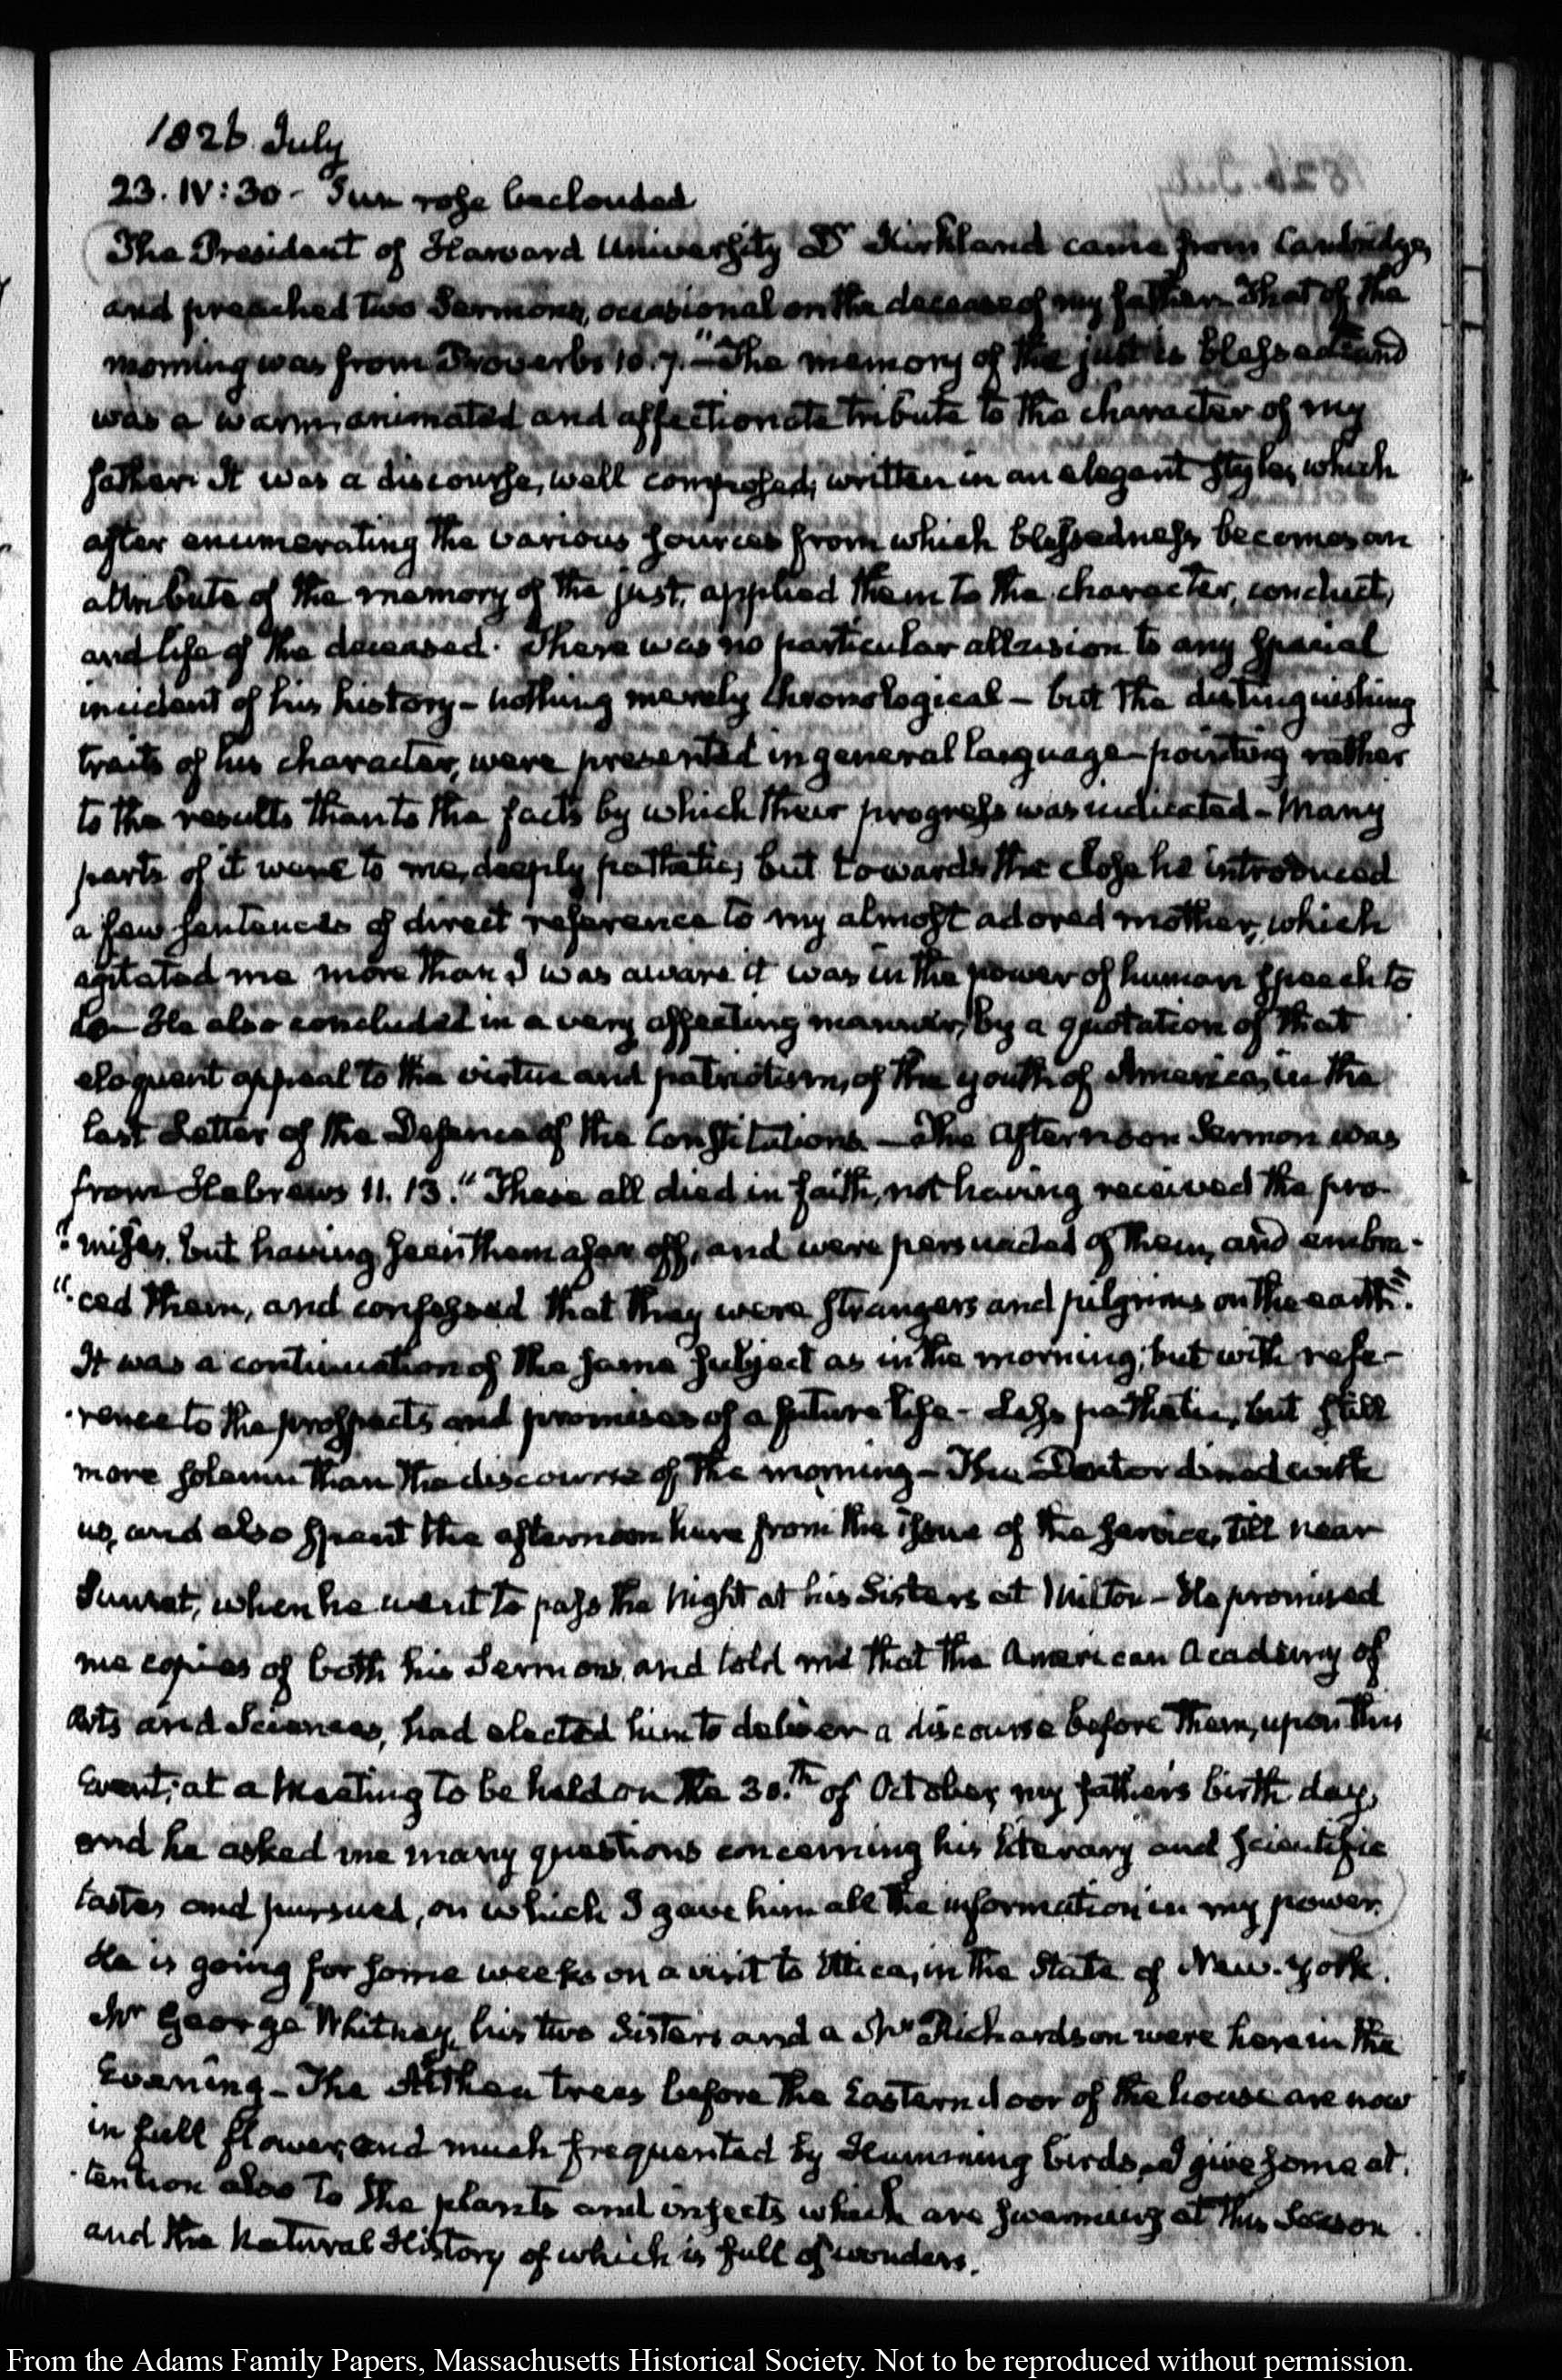 1826 July
23. IV:30 - Sun rose beclouded
The President of Harvard University Dr Kirkland came from Cambridge,
and preached two Sermons, occasional on the decease of my father. That of the
morning was from Proverbs 10.7. "The memory of the just is blessed" and
was a warm, animated and affectionate tribute to the character of my
father. It was a discourse, well composed, written in an elegant style, which
after enumerating the various sources from which blessedness becomes an
attribute of the memory of the just, applied them to the character, conduct,
and life of the deceased. There was no particular allusion to any special
incident of his history - nothing merely chronological - but the distinguishing
traits of his character, were presented in general language - pointing rather
to the results than to the facts by which their progress was indicated - Many
parts of it were to me, deeply pathetic, but towards the close he introduced
a few sentences of direct reference to my almost adored mother, which
agitated me more than I was aware it was in the power of human speech to
do - He also concluded in a very affecting manner, by a quotation of that
eloquent appeal to the virtue and patriotism, of the youth of America, in the
last Letter of the Defence of the Constitutions. - The afternoon Sermon was
from Hebrews 11. 13. "These all died in faith, not having received the pro-
"mises, but having seen them afar off, and were persuaded of them, and embra-
"ced them, and confessed that they were strangers and pilgrims on the earth".
It was a continuation of the same subject as in the morning; but with refe-
rence to the prospects and promises of a future life - Less pathetic, but still
more solemn than the discourse of the morning - The Doctor dined with
us, and also spent the afternoon here from the issue of the service, till near
Sunset, when he went to pass the Night at his Sisters at Milton - He promised
me copies of both his Sermons, and told me that the American Academy of
Arts and Sciences, had elected him to deliver a discourse before them, upon this
Event, at a Meeting to be held on the 30.th of October, my father's birth day,
and he asked me many questions concerning his literary and scientific
tastes and pursued, on which I gave him all the information in my power.
He is going for some weeks on a visit to Utica, in the State of New-York.
Mr George Whitney, his two Sisters and a Mr Richardson were here in the
Evening - The Althea trees before the Eastern door of the house are now
in full flower, and much frequented by Humming birds, I give some at-
tention also to the plants and insects which are swarming at this Season
and the Natural History of which is full of wonders.
From the Adams Family Papers, Massachusetts Historical Society. Not to be reproduced without permission.